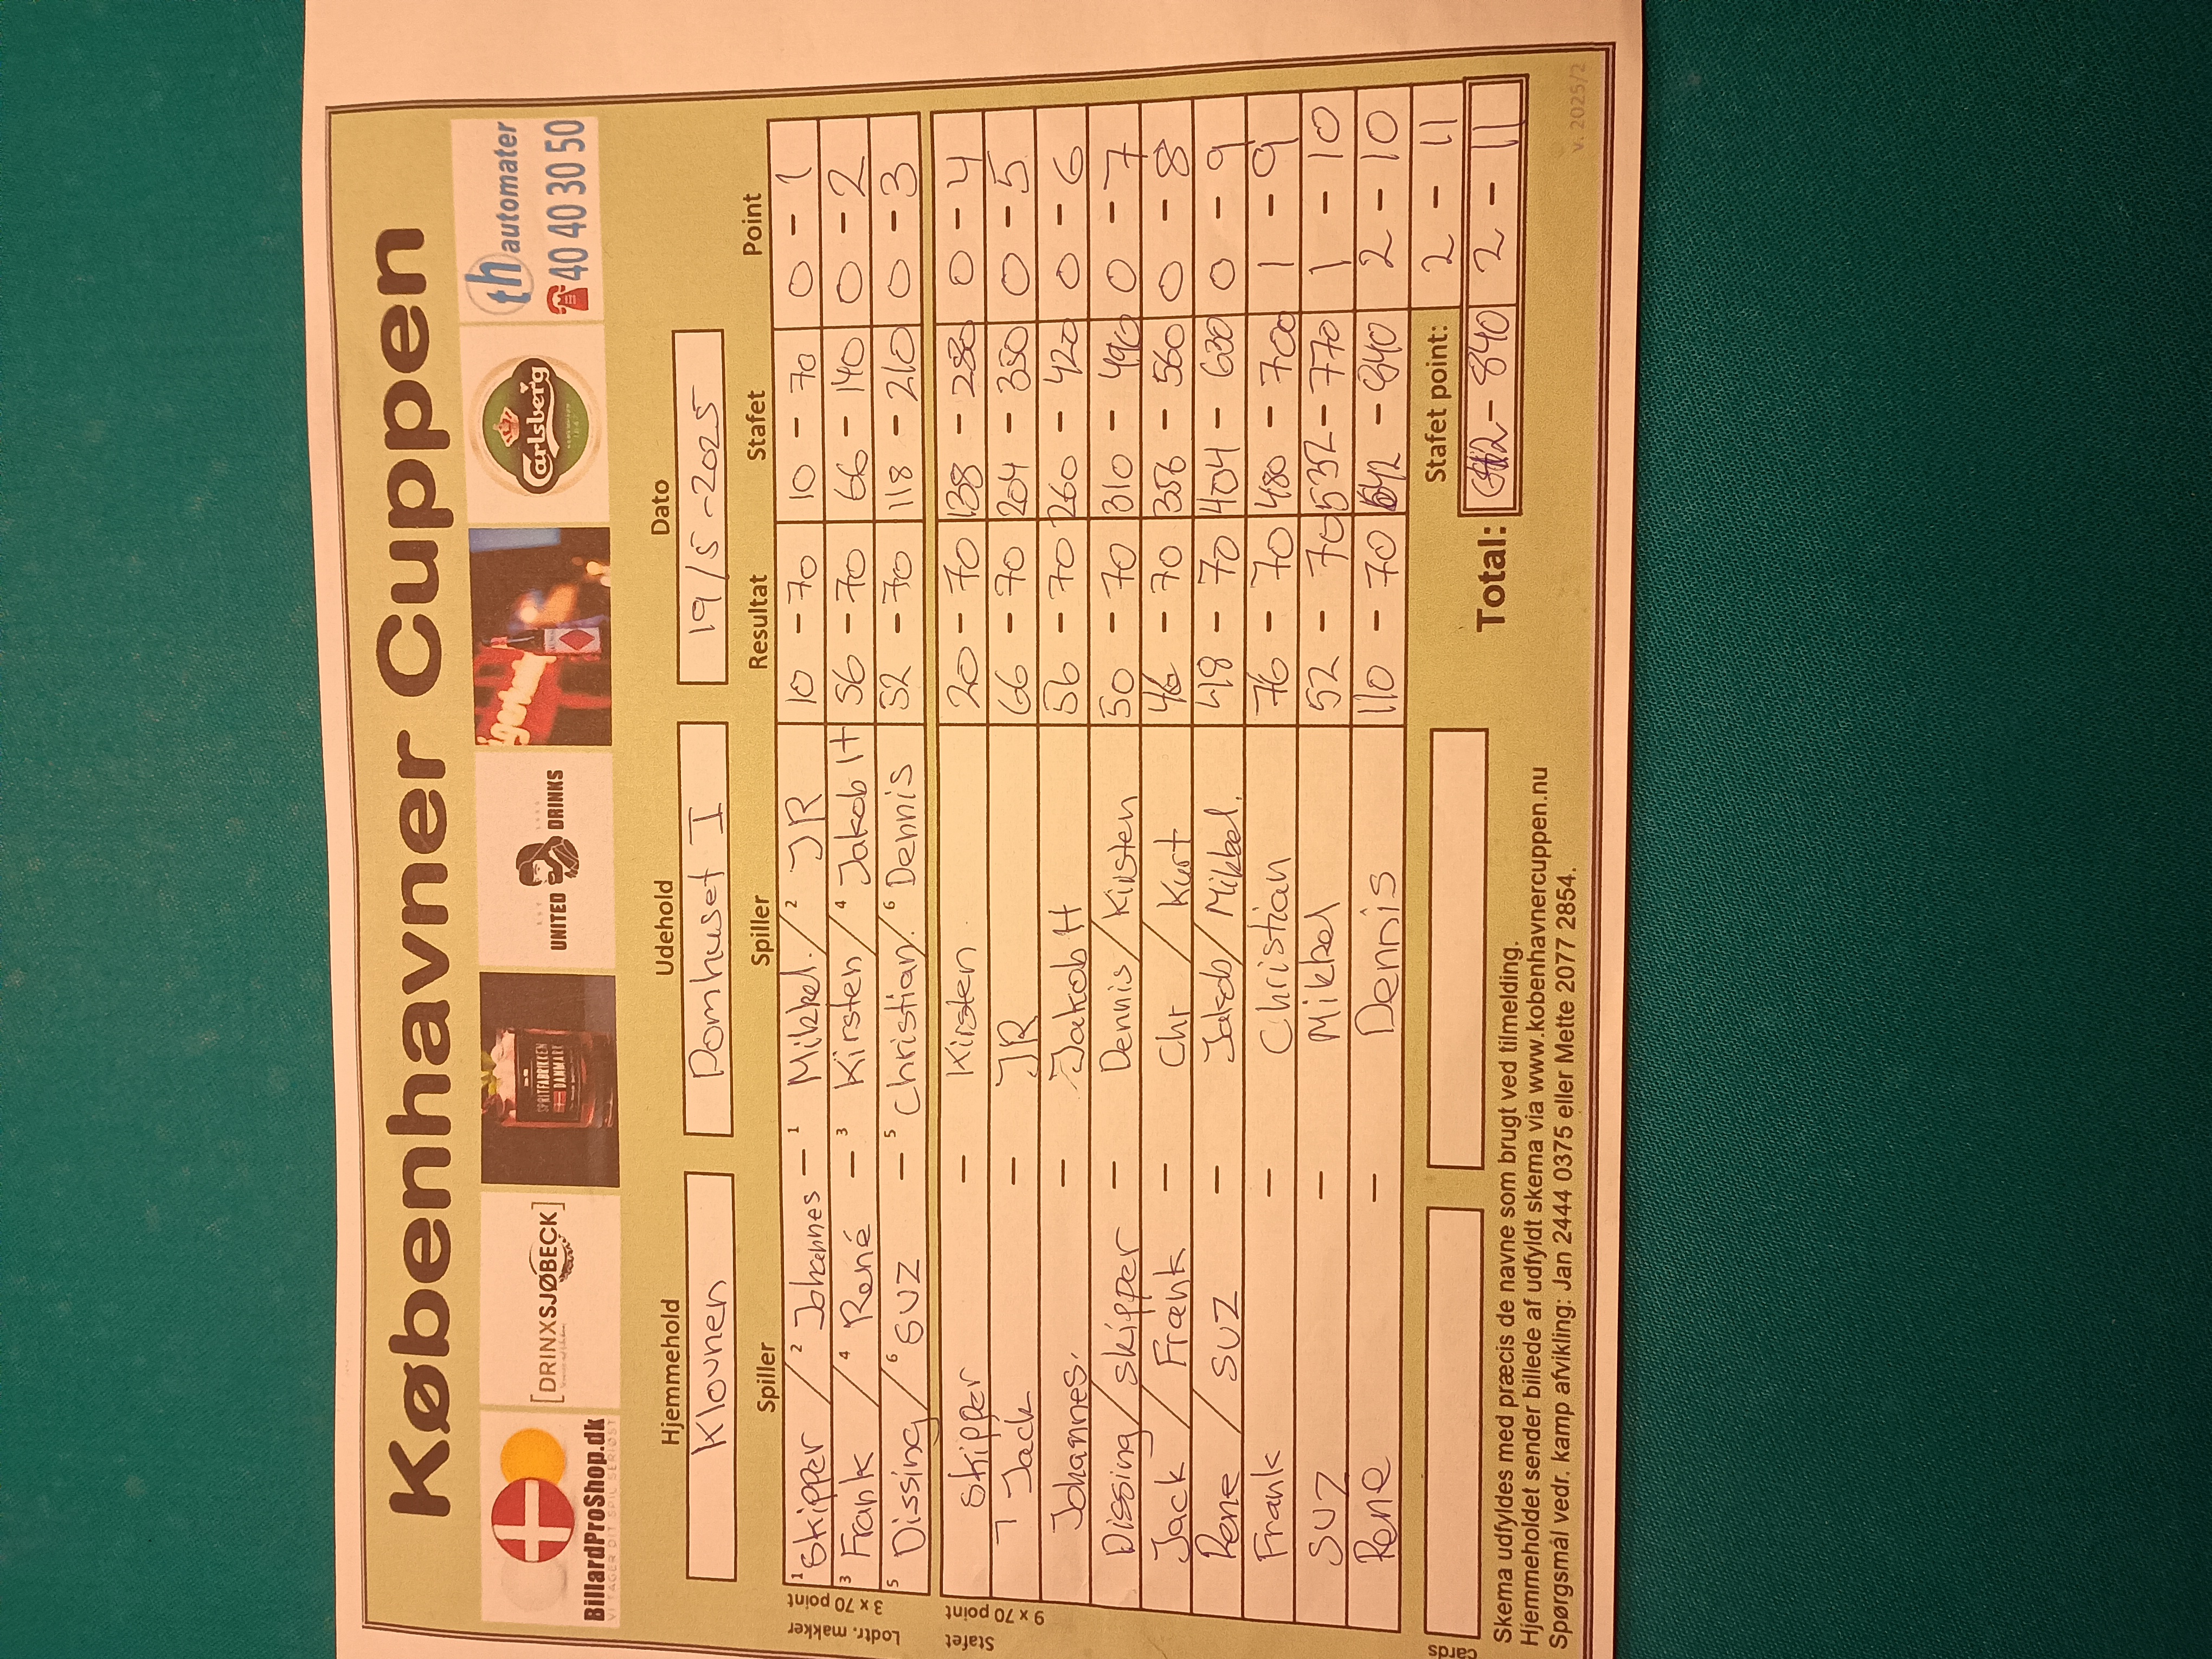 Københavner Cuppen
BillardProShop.dk
VI TAGER DIT SPIL SERIØST
[DRINXSJØBECK]
SPRITFABRIKKEN
DANMARK
UNITED DRINKS
Carlsberg
th automater
40 40 30 50
Hjemmehold Udehold Dato
Klovnen Pomhuset I 19/5-2025
Spiller Spiller Resultat Stafet Point
Lodtr. makker
3 x 70 point
1 Skipper / 2 Johannes - 1 Mikkel. / 2 JR 10 - 70 10 - 70 0 - 1
3 Frank / 4 René - 3 Kirsten / 4 Jakob H 56 - 70 66 - 140 0 - 2
5 Dissing / 6 SUZ - 5 Christian / 6 Dennis 52 - 70 118 - 210 0 - 3
Stafet
9 x 70 point
Skipper - Kirsten 20 - 70 138 - 280 0 - 4
Jack - JR 66 - 70 204 - 350 0 - 5
Johannes. - Jakob H 56 - 70 260 - 420 0 - 6
Dissing / Skipper - Dennis / Kirsten 50 - 70 310 - 490 0 - 7
Jack / Frank - Chr / Kurt 46 - 70 356 - 560 0 - 8
Rene / SUZ - Jakob / Mikkel. 48 - 70 404 - 630 0 - 9
Frank - Christian 76 - 70 480 - 700 1 - 9
SUZ - Mikkel 52 - 70 532 - 770 1 - 10
Rene - Dennis 110 - 70 642 - 840 2 - 10
Stafet point: 2 - 11
cards
Total: 642 - 840 2 - 11
Skema udfyldes med præcis de navne som brugt ved tilmelding.
Hjemmeholdet sender billede af udfyldt skema via www.kobenhavnercuppen.nu
Spørgsmål vedr. kamp afvikling: Jan 2444 0375 eller Mette 2077 2854.
v. 2025/2